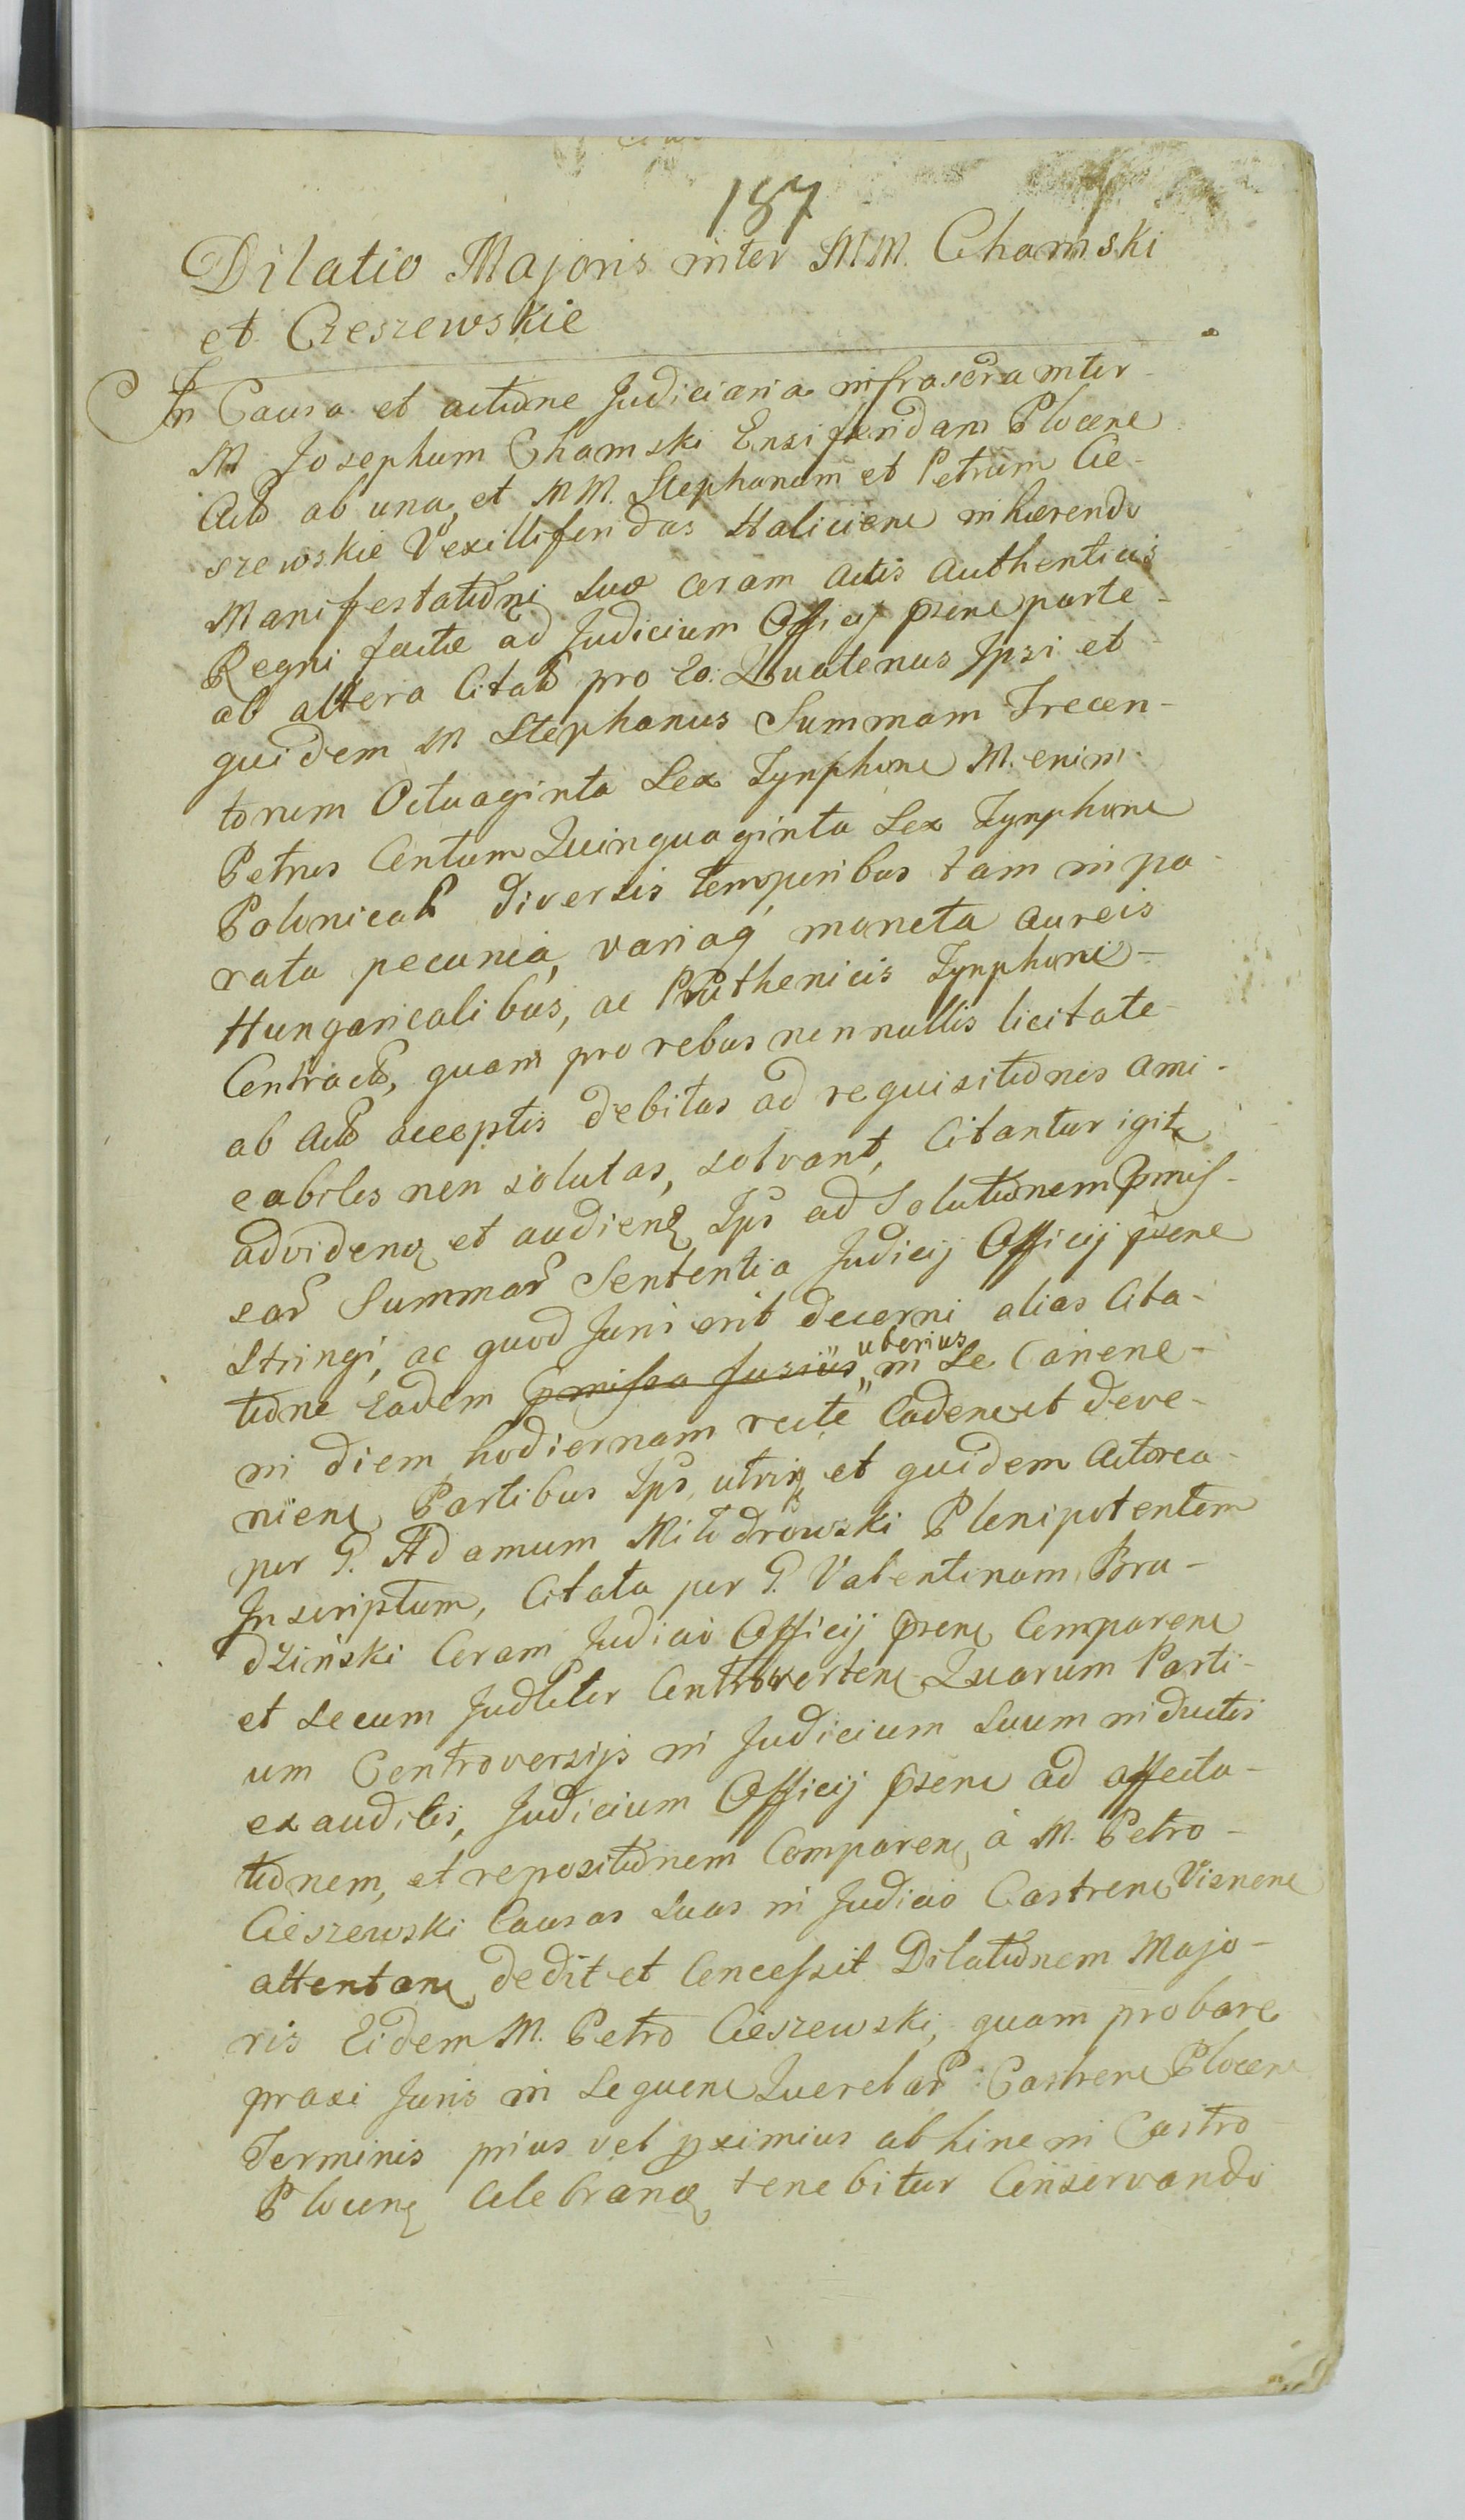 187
Dilatio Majoris inter MM. Chamski
et Cieszewskie
In Causa et actione Judiciaria infrascra inter
M Josephum Chamski Ensiferidam Plocene
Acto ab una, et MM. Stephanum et Petrum Cie-
szewskie Vexilliferidas Haliciene inhærendo
Manifestationi suæ coram Actis Authenticis
Regni factæ ad Judicium Officij psene parte
ab altera Citat pro Eo. Quatenus Ipsi et
quidem M Stephanus Summam Trecen-
torum Octuaginta Sex Tynphone M. enim
Petrus Centum Quinquaginta Sex Tynphone
Polonical diversis temporibus tam in pa-
rata pecunia, variaq moneta aureis
Hungaricalibus, ac Pruthenicis Tynphoni-
Contract, quam pro rebus nonnullis licitate
ab Acto acceptis debitas ad requisitiones ami-
cabiles non solutas, solvant, Citantur igitr
ad videnq et audienq Ips ad Solutionem pmis-
sar Summar Sententia Judicij Officij psene
Stringi, ac quod Juris erit decerni alias Cita-
tione Eadem pmissa fusius uberius in Se Canene-
in diem hodiernam recte Cadene et deve-
niene Partibus Ips utrinq et quidem Actorea
per G. Adamum Milodrowski Plenipotentem
Inscriptum, Citata per G. Valentinum Bru-
dziński Coram Judicio Officij psene Comparene
et Secum Judliter Controvertene Quarum Parti-
um Controversijs in Judicium Suum inductis
exauditis, Judicium Officij psene ad affecta-
tionem, et repositionem Comparene à M. Petro
Cieszewski Causas Suas in Judicio Castrene Visnene
attentane dedit et Concessit Dilationem Majo-
ris Eidem M. Petro Cieszewski, quam probare
praxi Juris in Sequene Querelar Castrene Plocene
Terminis prius vel pximius abhinc in Castro
Plocene Celebrand tenebitur Conservando